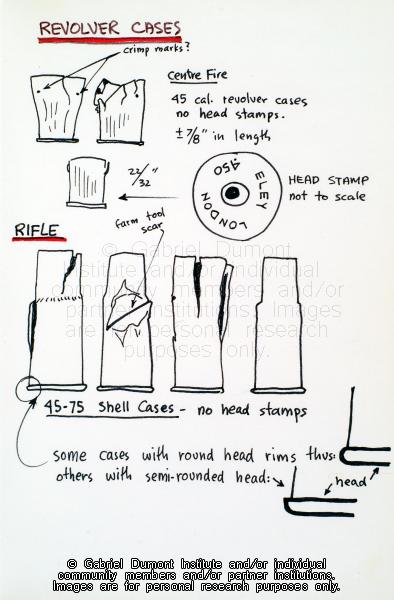 REVOLVER CASES
crimp marks?
Centre Fire
45 cal. revolver cases
no head stamps.
± 7/8" in length
22/32"
ELEY
LONDON
.450
HEAD STAMP
not to scale
farm tool
scar
RIFLE
© Gabriel Dumont
Institute and/or individual
community members and/or
partner institutions. Images
are for personal research
purposes only.
45-75 Shell Cases - no head stamps
some cases with round head rims thus:
others with semi-rounded head:
head
© Gabriel Dumont Institute and/or individual
community members and/or partner institutions.
Images are for personal research purposes only.